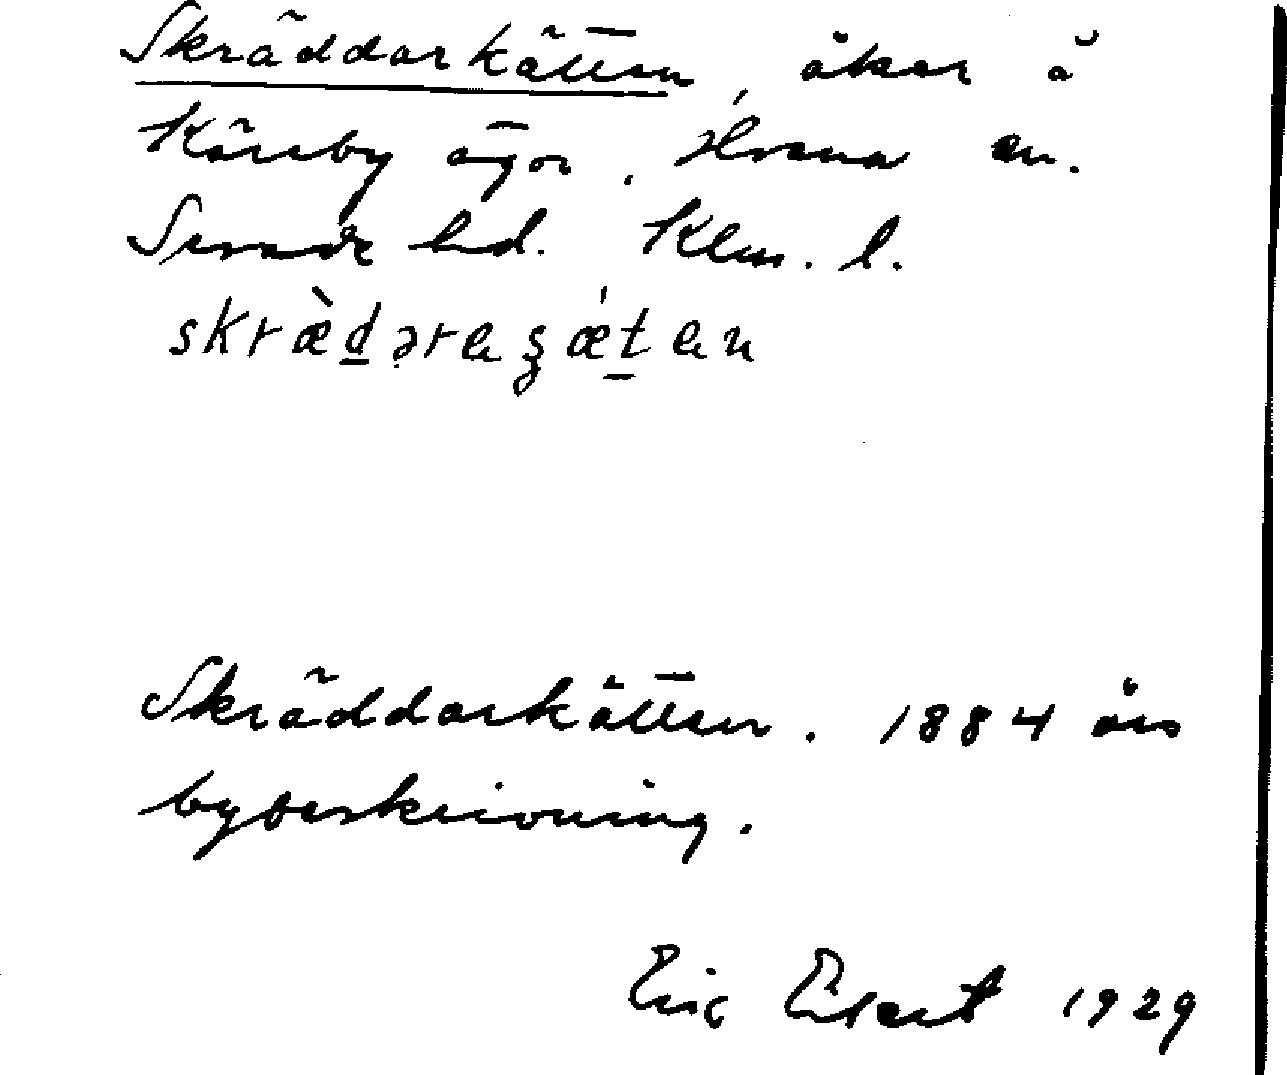 Skräddarkätten, åker å
Kärrby ägor. Hvena sn.
Sevede hd. Klm. l.
skræ̀d̲ərɐȿǽt̲ɐn
Skräddarkätten. 1884 års
bybeskrivning.
Eric Elsert 1929